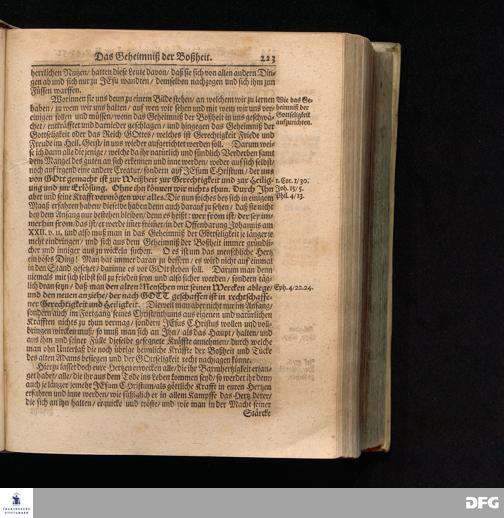 Das Geheimniß der Boßheit. 223
herrlichen Nutzen / hatten diese Leute davon / daß sie sich von allen andern Din-
gen ab und sich nur zu JEsu wandten / demselben nachzogen und sich ihm zun
Füssen warffen.
Worinnen sie uns denn zu einem Bilde stehen / an welchem wir zu lernen
haben / zu wem wir uns halten / auf wen wir sehen und mit wem wir uns ver-
einigen sollen und müssen / wenn das Geheimniß der Boßheit in uns geschwä-
chet / entkräfftet und darnieder geschlagen / und hingegen das Geheimniß der
Gottseligkeit oder das Reich GOttes / welches ist Gerechtigkeit Friede und
Freude im Heil. Geist / in uns wieder aufgerichtet werden soll. Darum wei-
se ich dann alle diejenige / welche da ihr natürlich und sündlich Verderben samt
dem Mangel des guten an sich erkennen und inne werden / weder auf sich selbst /
noch auf irgend eine andere Creatur / sondern auf JEsum Christum / der uns
von GOtt gemacht ist zur Weißheit zur Gerechtigkeit und zur Heilig-
ung und zur Erlösung. Ohne ihn können wir nichts thun. Durch Ihn
aber und seine Krafft vermögen wir alles. Die nun solches bey sich in einigem
Maaß erfahren haben / dieselbe haben denn auch darauf zu sehen / daß sie nicht
bey dem Anfang nur bestehen bleiben / denn es heißt: wer from ist / der sey im-
merhin from / das ist / er werde immer frömmer / in der Offenbarung Johannis am
XXII. v. 11. und also muß man in das Geheimniß der Gottseligkeit je länger je
mehr eindringen / und sich aus dem Geheimniß der Boßheit immer gründli-
cher und inniger aus zu wickeln suchen. O es ist um das menschliche Hertz
ein böses Ding! Man hat immer daran zu bessern / es wird nicht auf einmal
in den Stand gesetzet / darinne es vor GOtt stehen soll. Darum man denn
niemals mit sich selbst soll zu frieden seyn und also sicher werden / sondern täg-
lich dran seyn / daß man den alten Menschen mit seinen Wercken ablege /
und den neuen anziehe / der nach GOTT geschaffen ist in rechtschaffe-
ner Gerechtigkeit und Heiligkeit. Dieweil man aber nicht nur im Anfang /
sondern auch im Fortgang seines Christenthums aus eigenen und natürlichen
Kräfften nichts zu thun vermag / sondern JEsus Christus wollen und voll-
bringen wircken muß / so muß man sich an Ihn / als das Haupt / halten / und
aus ihm und seiner Fülle dieselbe gesegnete Kräffte annehmen / durch welche
man ohn Unterlaß die noch übrige heimliche Kräffte der Boßheit und Tücke
des alten Adams besiegen und der Gottseligkeit recht nachjagen könne.
Hierzu lasset doch eure Hertzen erwecken alle / die ihr Barmhertzigkeit erlan-
get habet / alle / die ihr aus dem Tode ins Leben kommen seyd / so werdet ihr denn
auch je länger je mehr JEsum Christum / als göttliche Krafft in euren Hertzen
erfahren und inne werden / wie süßiglich er in allem Kampffe das Hertz derer /
die sich an ihn halten / erquicke und tröste / und wie man in der Macht seiner
Stärcke
Wie das Ge-
heimniß der
Gottseligkeit
aufzurichten.
1. Cor. 1/30.
Joh. 15/5.
Phil. 4/13.
Eph. 4/22.24.
FRANCKESCHE
STIFTUNGEN
DFG